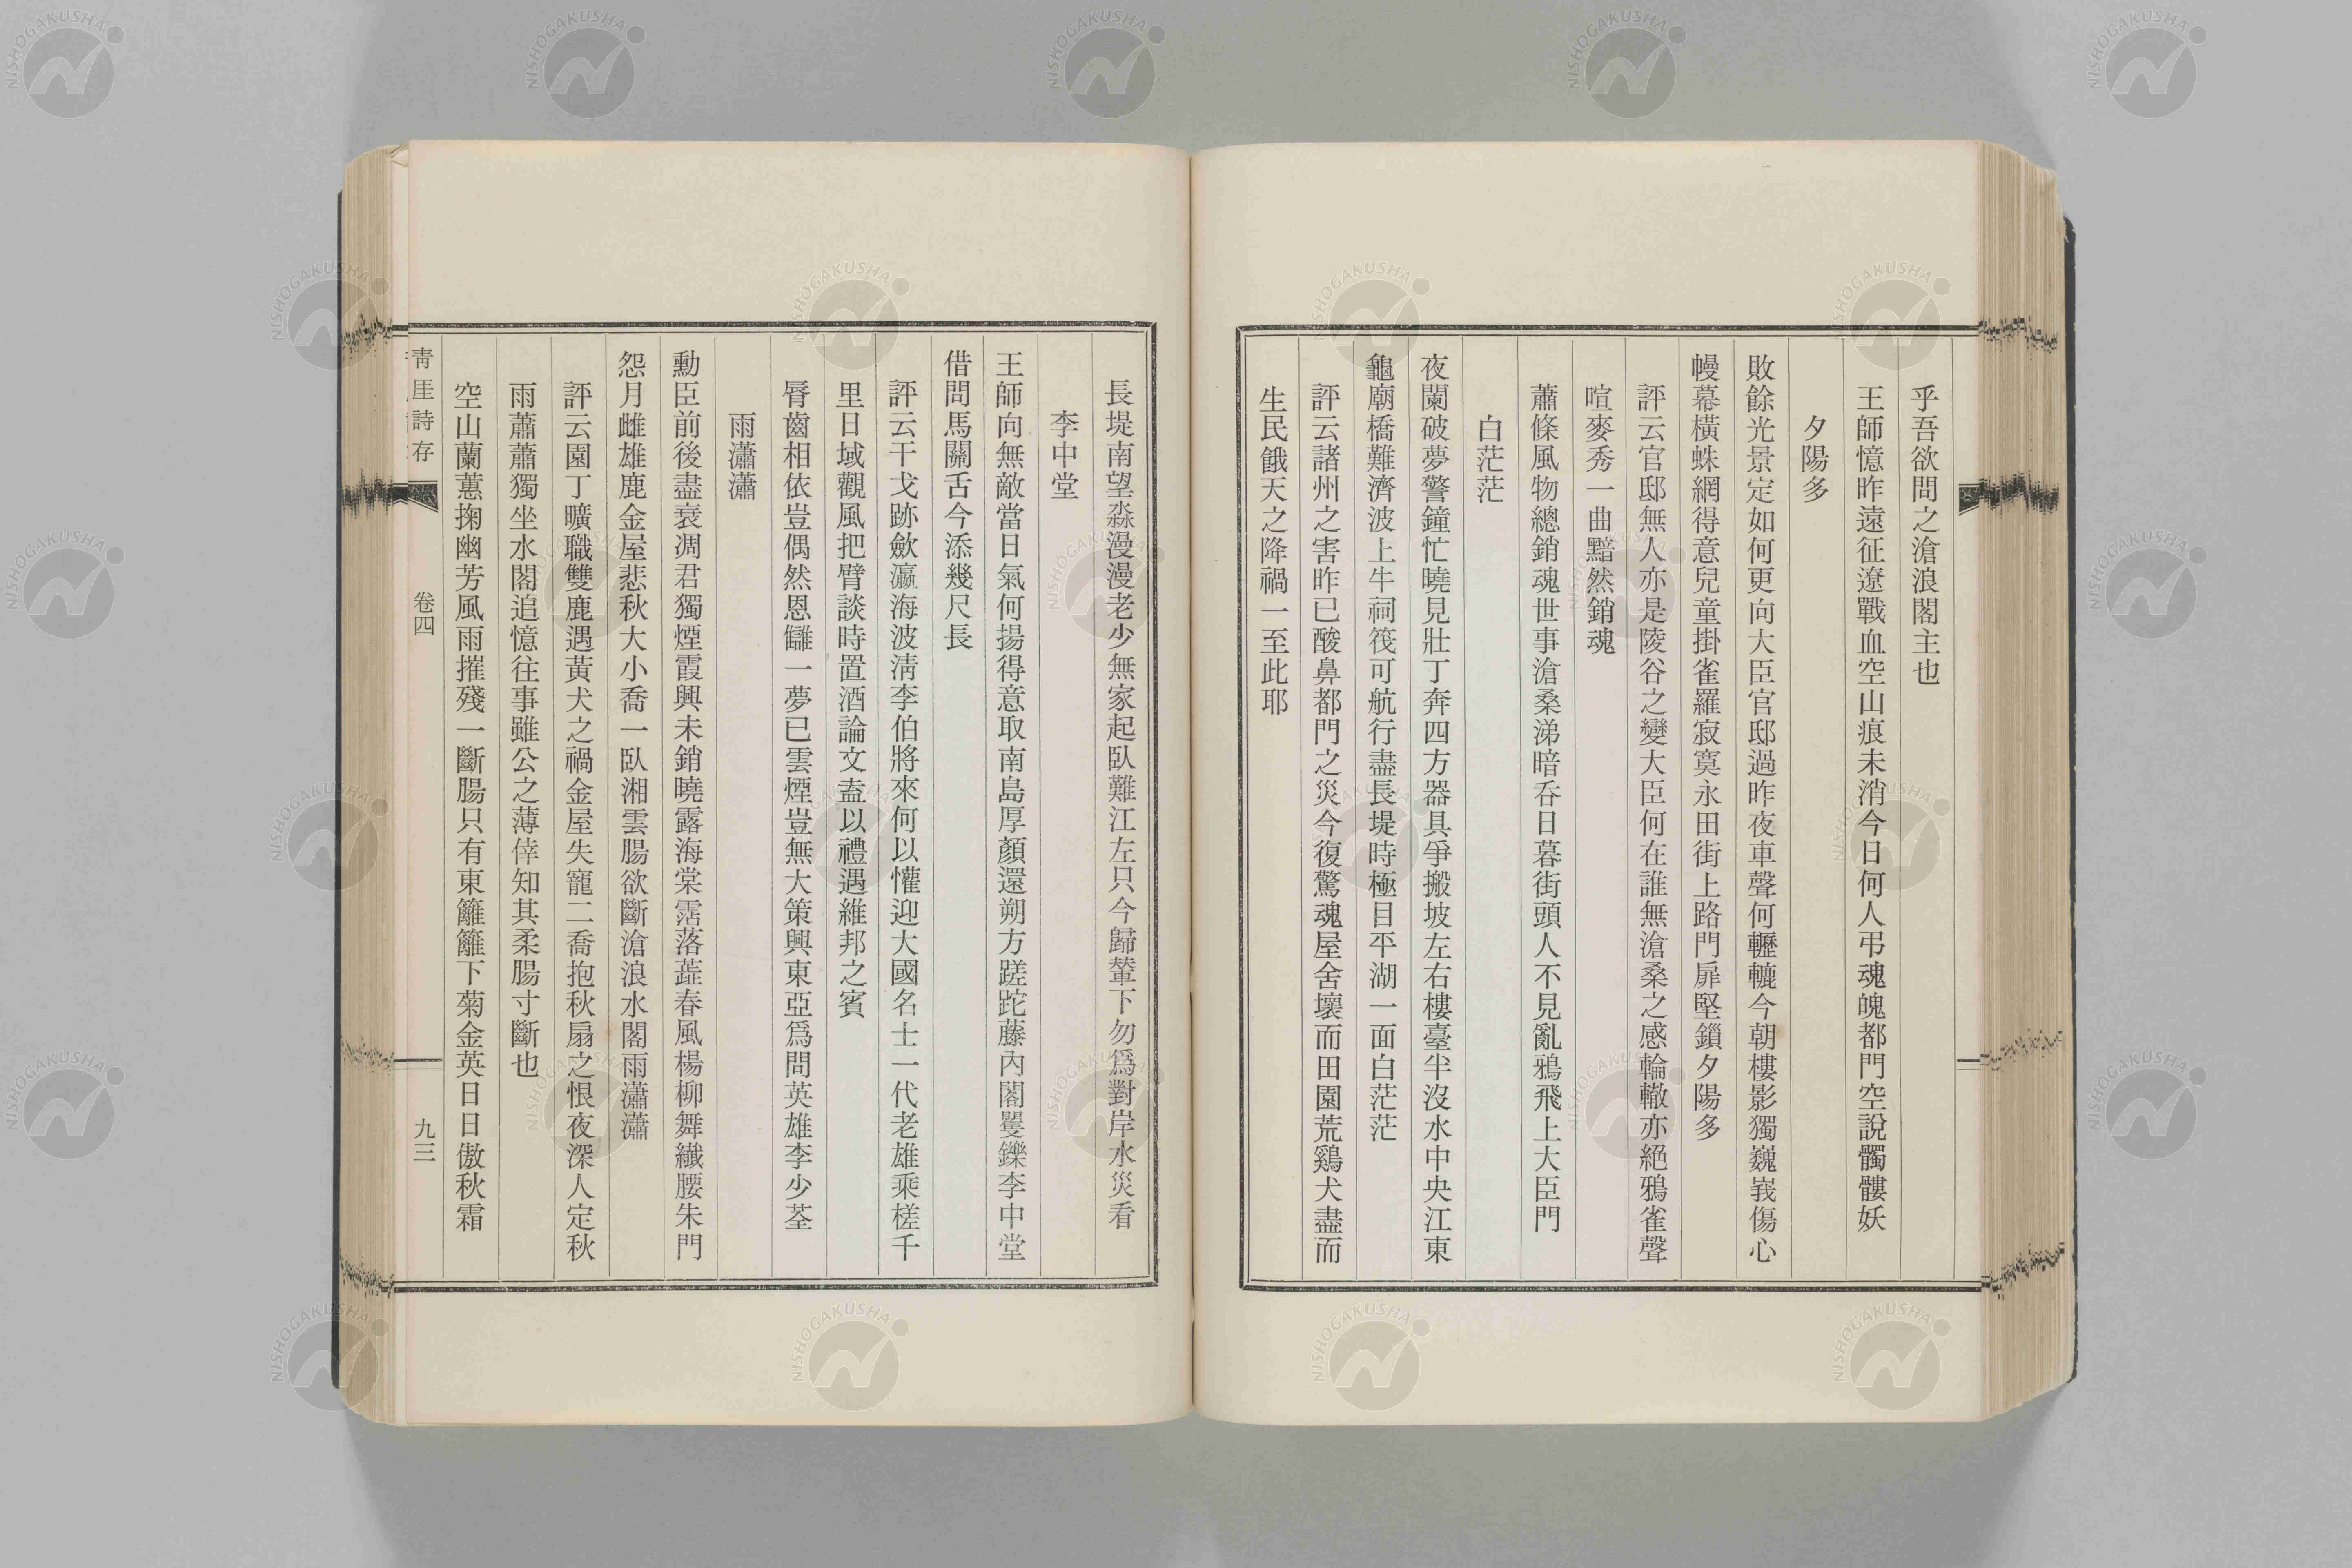 乎吾欲問之滄浪閣主也
王師憶昨遠征遼戰血空山痕未消今日何人弔魂魄都門空說髑髏妖
夕陽多
敗餘光景定如何更向大臣官邸過昨夜車聲何轣轆今朝樓影獨巍峩傷心
幔幕橫蛛網得意兒童掛雀羅寂寞永田街上路門扉堅鎖夕陽多
評云官邸無人亦是陵谷之變大臣何在誰無滄桑之感輪轍亦絕鴉雀聲
喧麥秀一曲黯然銷魂
蕭條風物總銷魂世事滄桑涕暗吞日暮街頭人不見亂鴉飛上大臣門
白茫茫
夜闌破夢警鐘忙曉見壯丁奔四方器具爭搬坡左右樓臺半沒水中央江東
龜廟橋難濟波上牛祠筏可航行盡長堤時極目平湖一面白茫茫
評云諸州之害昨已酸鼻都門之災今復驚魂屋舍壞而田園荒鷄犬盡而
生民餓天之降禍一至此耶
長堤南望淼漫漫老少無家起臥難江左只今歸輦下勿爲對岸水災看
李中堂
王師向無敵當日氣何揚得意取南島厚顏還朔方蹉跎藤內閣矍鑠李中堂
借問馬關舌今添幾尺長
評云干戈跡歛瀛海波淸李伯將來何以懽迎大國名士一代老雄乘槎千
里日域觀風把臂談時置酒論文盍以禮遇維邦之賓
脣齒相依豈偶然恩讎一夢已雲煙豈無大策興東亞爲問英雄李少荃
雨瀟瀟
勳臣前後盡衰凋君獨煙霞興未銷曉露海棠霑落蘂春風楊柳舞纖腰朱門
怨月雌雄鹿金屋悲秋大小喬一臥湘雲腸欲斷滄浪水閣雨瀟瀟
評云園丁曠職雙鹿遇黃犬之禍金屋失寵二喬抱秋扇之恨夜深人定秋
雨蕭蕭獨坐水閣追憶往事雖公之薄倖知其柔腸寸斷也
空山蘭蕙掬幽芳風雨摧殘一斷腸只有東籬籬下菊金英日日傲秋霜
靑厓詩存
卷四
九三
NISHOGAKUSHA